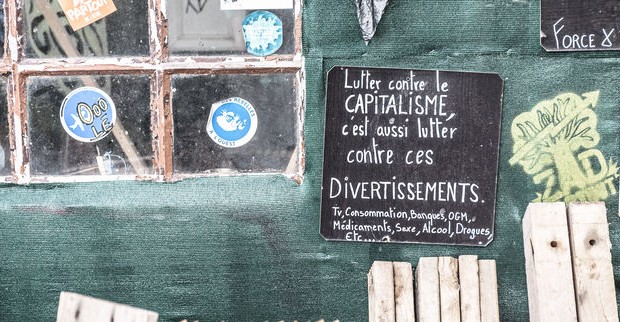 PARTOUT
Force &
Lutter contre le
CAPITALISME,
c'est aussi lutter
contre ces
DIVERTISSEMENTS.
Tv, Consommation, Banques, OGM,
Médicaments, Sexe, Alcool, Drogues
Etc...
ZAD